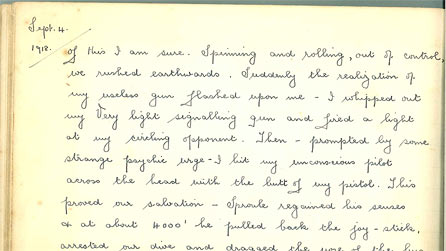 Sept. 4.
1918.
of this I am sure. Spinning and rolling, out of control,
we rushed earthwards. Suddenly the realization of
my useless gun flashed upon me - I whipped out
my Very light signalling gun and fired a light
at my circling opponent. Then - prompted by some
strange psychic urge - I hit my unconscious pilot
across the head with the butt of my pistol. This
proved our salvation - Sproule regained his senses
& at about 4000' he pulled back the joy-stick,
arrested our dive and dragged the nose of the bus